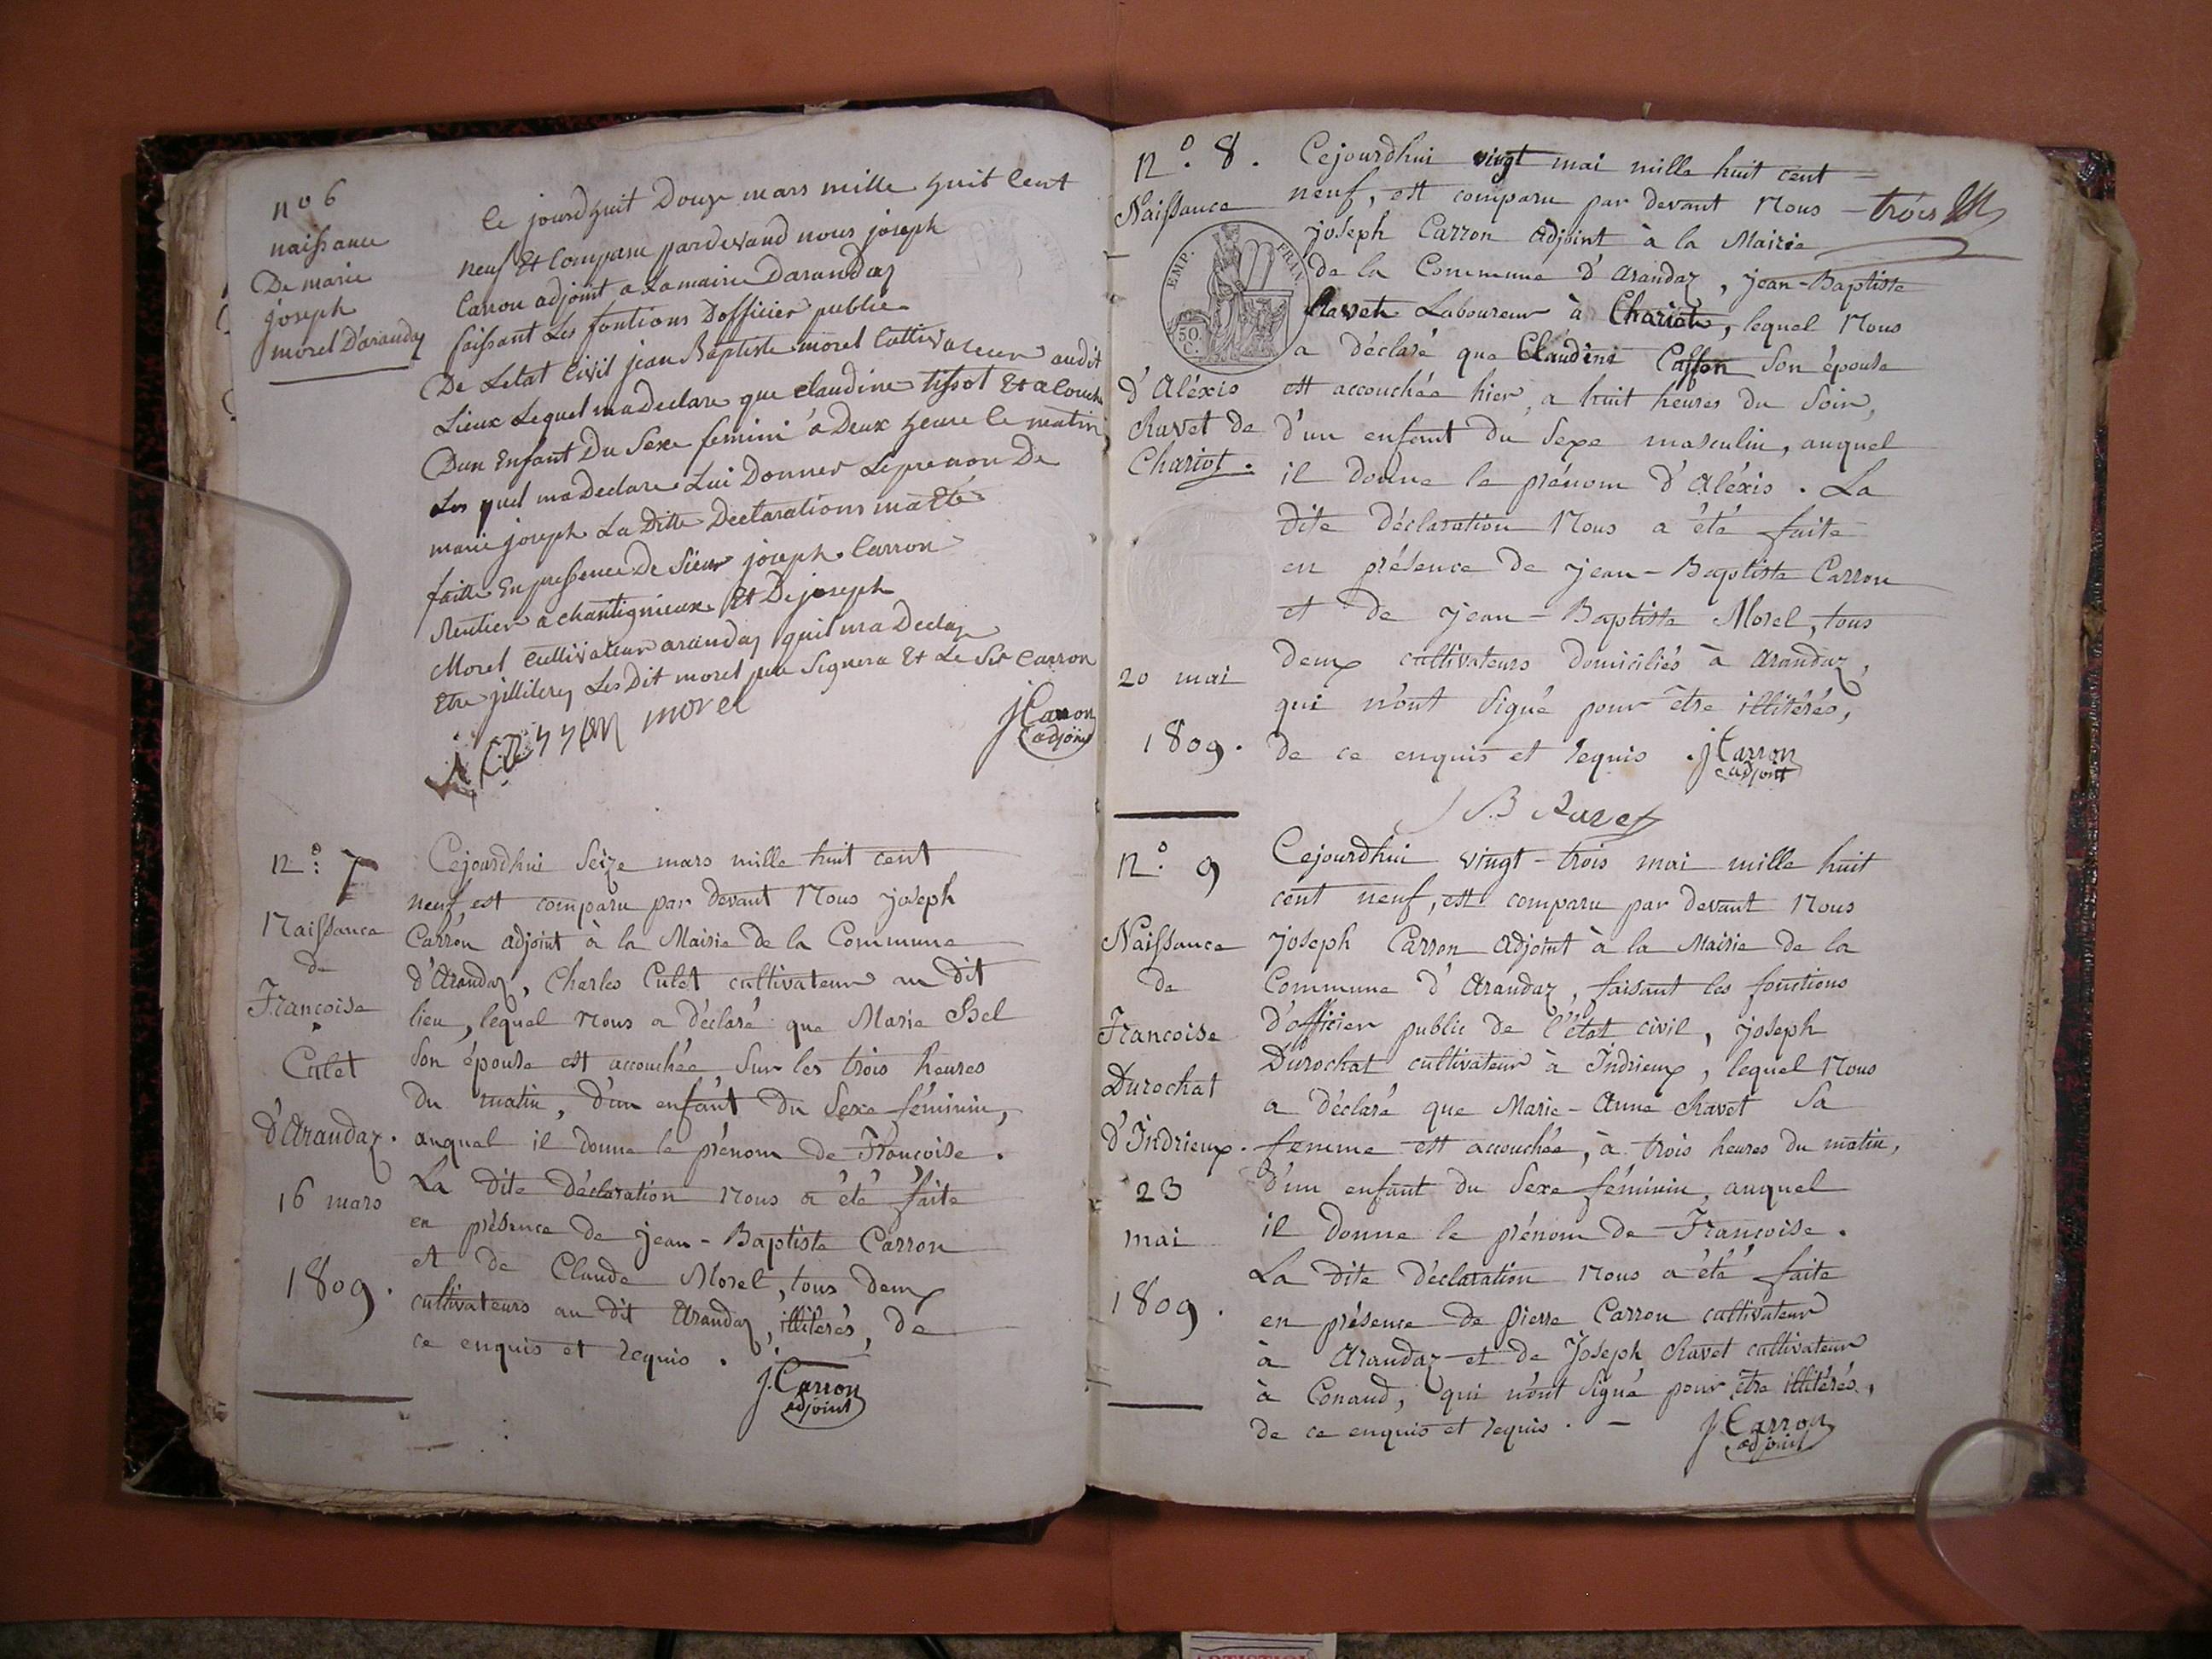 no 6
naissance
De marie
joseph
morel D'arandaz
Ce jourdhuit Douze mars mille huit Cent
neuf Et Comparu pardevand nous joseph
Carron adjoint a La mairie Darandaz
faissant Les fontions Dofficier public
De Letat Civil jean Baptiste morel Cultivateur audit
Lieux Lequel ma Declare que claudine tissot Et acouche
Dun Enfant Du Sexe femini a Deux heure le matin
Les quel ma Declare Lui Donner Le prenon De
marie joseph La Ditte Declarations ma Eté
faitte En pressence De Sieur joseph Carron
Rentier a chantignieux Et De joseph
Morel Cultivateur arandaz quil ma Declaz
Etre jlliterez Les Dit morel Signera Et Le Sr Carron
morel
J Carron
adjoint
N.° 7
Naissance
de
Francoise
Culet
d'Arandaz.
16 mars
1809.
Cejourdhui Seize mars mille huit cent
neuf, est comparu par devant Nous joseph
Carron adjoint à la Mairie de la Commune
d'Arandaz, Charles Culet cultivateur au dit
lieu, lequel Nous a déclaré que Marie Bel
Son épouse est accouchée, Sur les trois heures
du matin, d'un enfant du Sexe féminin,
auquel il donne le prénom de Françoise.
La dite déclaration Nous a été faite
en présence de jean-Baptiste Carron
et de Claude Morel, tous deux
cultivateurs au dit Arandaz, illiterés, de
ce enquis et requis.
J. Carron
adjoint
N.° 8.
Naissance
EMP. FRAN.
50
C.
d'Aléxis
Ravet de
Chariot.
20 mai
1809.
Cejourdhui vingt mai mille huit cent =
neuf, est comparu par devant Nous – trois
joseph Carron adjoint à la Mairie
de la Commune d'Arandaz, jean-Baptiste
Ravet Laboureur à Chariot, lequel Nous
a déclaré que Claudine Son épouse
est accouchée hier, a huit heures du Soir,
d'un enfant du Sexe masculin, auquel
il donne le prénom d'Aléxis. La
dite déclaration Nous a été faite
en présence de jean-Baptiste Carron
et de jean-Baptiste Morel, tous
deux cultivateurs domiciliés à Arandaz,
qui n'ont Signé pour être illitérés,
de ce enquis et requis. J Carron
adjoint
J B Ravet
N.° 9
Naissance
de
Francoise
Durochat
d'Indrieux.
23
mai
1809.
Cejourdhui vingt-trois mai mille huit
cent neuf, est comparu par devant Nous
joseph Carron adjoint à la Mairie de la
Commune d'Arandaz, faisant les fonctions
d'officier public de l'état civil, joseph
Durochat cultivateur à Indrieux, lequel Nous
a déclaré que Marie-Anne Ravet Sa
femme est accouchée, à trois heures du matin,
d'un enfant du Sexe féminin, auquel
il donne le prénom de Françoise.
La dite déclaration Nous a été faite
en présence de pierre Carron cultivateur
à Arandaz et de Joseph Ravet cultivateur
à Conand, qui n'ont Signé pour être illitérés,
de ce enquis et requis. –
J. Carron
adjoint